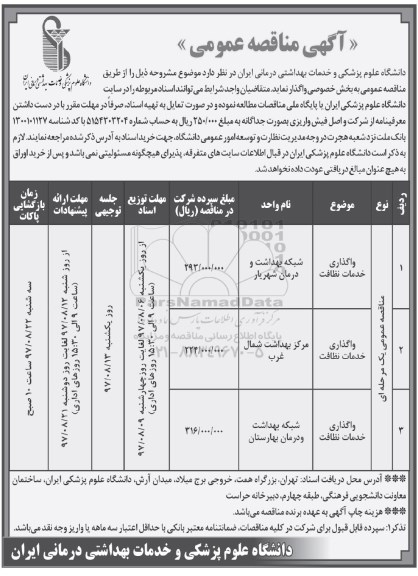 « آگهی مناقصه عمومی »
دانشگاه علوم پزشکی و خدمات بهداشتی درمانی ایران
دانشگاه علوم پزشکی و خدمات بهداشتی درمانی ایران در نظر دارد موضوع مشروحه ذیل را از طریق
مناقصه عمومی به بخش خصوصی واگذار نماید. متقاضیان واجد شرایط می‌توانند اسناد مربوطه را در سایت
دانشگاه علوم پزشکی ایران یا پایگاه ملی مناقصات مطالعه نموده و در صورت تمایل به تهیه اسناد، صرفاً در مهلت مقرر با در دست داشتن
معرفینامه از شرکت و اصل فیش واریزی بصورت جداگانه به مبلغ ۲۵۰/۰۰۰ ریال به حساب شماره ۵۱۵۴۳۰۳۲۰۴ با کد شناسه ۱۳۰۰۱۰۱۱۲۷
بانک ملت نزد شعبه هجرت در وجه مدیریت نظارت و توسعه امور عمومی دانشگاه، جهت خرید اسناد به آدرس ذکر شده مراجعه نمایند. لازم
به ذکر است دانشگاه علوم پزشکی ایران در قبال اطلاعات سایت های متفرقه، پذیرای هیچگونه مسئولیتی نمی باشد و پس از خرید اوراق
به هیچ عنوان مبالغ دریافتی عودت داده نخواهد شد.
ردیف نوع موضوع نام واحد مبلغ سپرده شرکت در مناقصه (ریال) مهلت توزیع اسناد جلسه توجیهی مهلت ارائه پیشنهادات زمان بازگشایی پاکات
۱ واگذاری خدمات نظافت شبکه بهداشت و درمان شهریار ۲۹۳/۰۰۰/۰۰۰
۲ واگذاری خدمات نظافت مرکز بهداشت شمال غرب ۲۲۴/۰۰۰/۰۰۰
۳ واگذاری خدمات نظافت شبکه بهداشت ودرمان بهارستان ۳۱۶/۰۰۰/۰۰۰
مناقصه عمومی یک مرحله ای
از روز یکشنبه ۹۷/۰۸/۰۶ لغایت روز چهارشنبه ۹۷/۰۸/۰۹
(ساعت ۹ الی ۱۵:۳۰ روزهای اداری)
روز یکشنبه ۹۷/۰۸/۱۳
از روز شنبه ۹۷/۰۸/۱۲ لغایت روز دوشنبه ۹۷/۰۸/۲۱
(ساعت ۹ الی ۱۵:۳۰ روزهای اداری)
سه شنبه ۹۷/۰۸/۲۲ ساعت ۱۰ صبح
ParsNamadData
پایگاه اطلاع رسانی مناقصه و مزایده
۰۲۱-۸۸۳۴۹۶۷۰-۵
※※※ آدرس محل دریافت اسناد: تهران، بزرگراه همت، خروجی برج میلاد، میدان آرش، دانشگاه علوم پزشکی ایران، ساختمان
معاونت دانشجویی فرهنگی، طبقه چهارم، دبیرخانه حراست
※※※ هزینه چاپ آگهی به عهده برنده مناقصه می‌باشد.
تذکر۱: سپرده قابل قبول برای شرکت در کلیه مناقصات، ضمانتنامه معتبر بانکی با حداقل اعتبار سه ماهه یا واریز وجه نقد می‌باشد.
دانشگاه علوم پزشکی و خدمات بهداشتی درمانی ایران